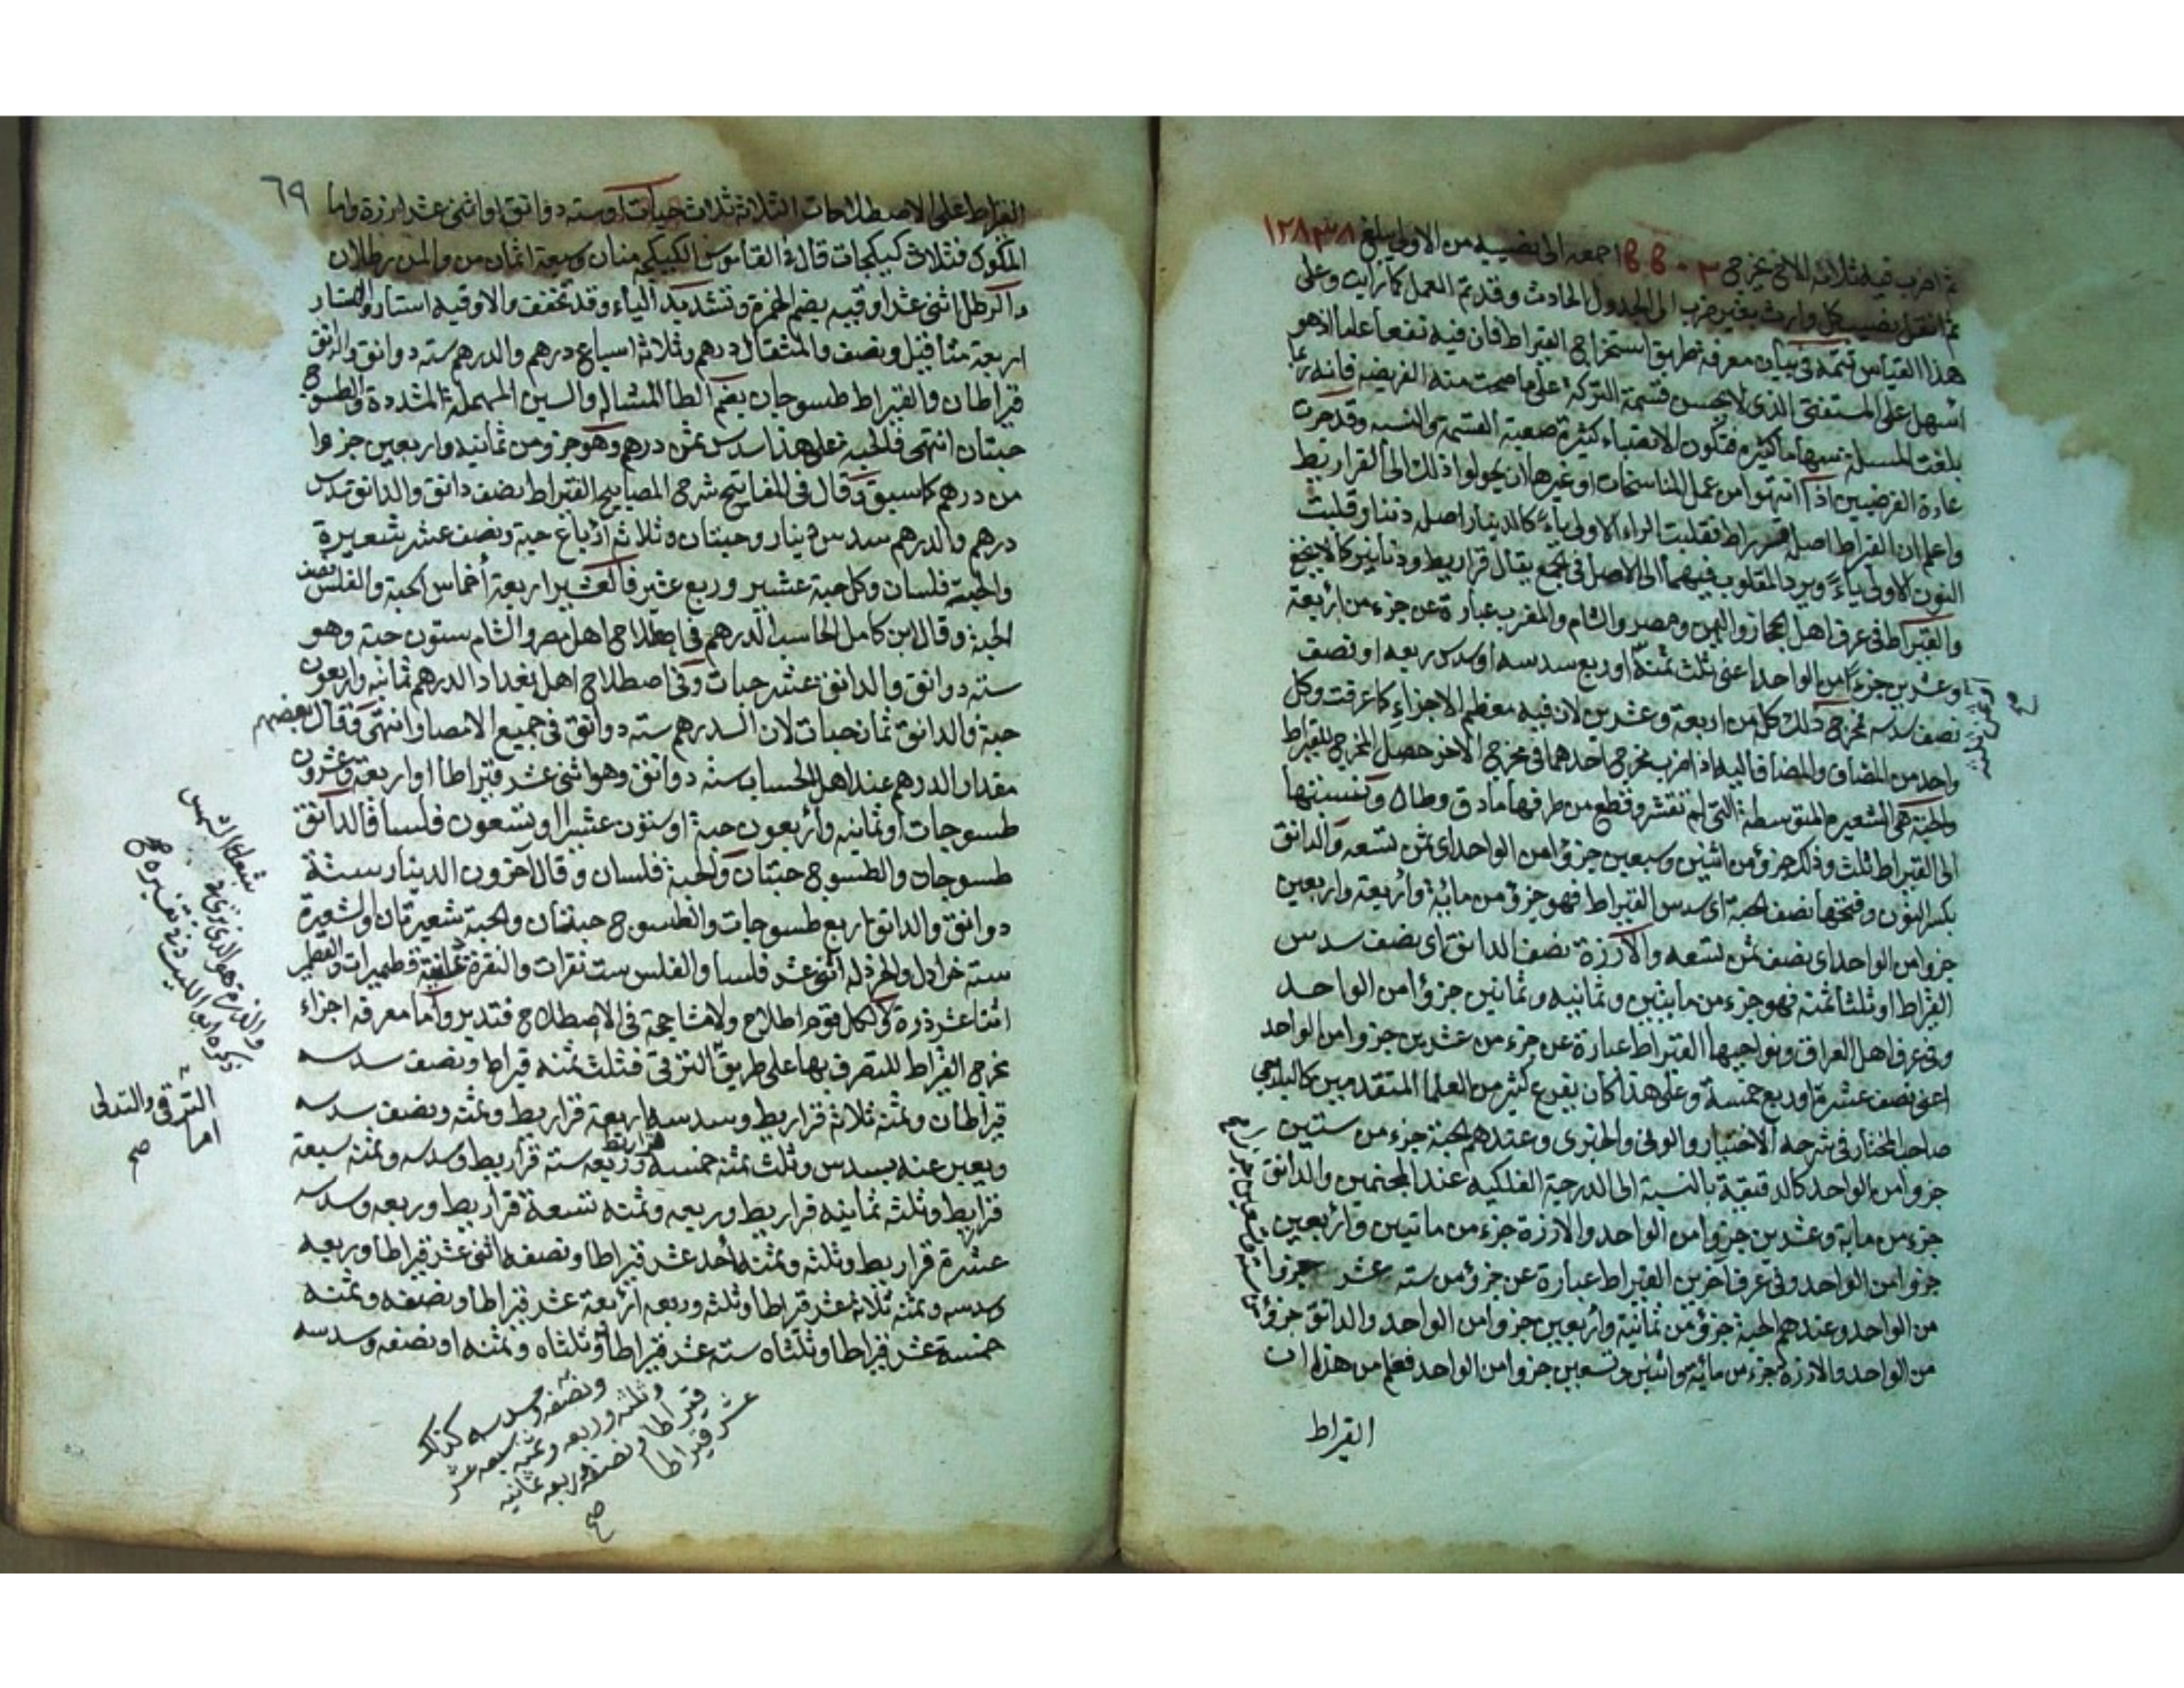 ثم اضرب فيه ثلاثة الاخ يخرج اجمعه الى نصيبه من الاولى يبلغ ١٢٨٣٨
ثم انقل نصيب كل وارث بغير ضرب الى الجدول الحادث وقد تم العمل كما رايت وعلى
هذا القياس تتمة في بيان معرفة طريق استخراج القيراط فان فيه نفعا علما اذ هو
اسهل على المستفتي الذي لا يحسن قسمة التركة على ما صحت منه الفريضة فانه ربما
بلغت المسئلة سهاما كثيرة فتكون الانصباء كثيرة صعبة القسمة والنسبة وقد جرت
عادة الفرضيين اذا انتهوا من عمل المناسخات او غيرها ان يحولوا ذلك الى القراريط
واعلم ان القيراط اصله قرراط فقلبت الراء الاولى ياء كالدينار اصله دننار قلبت
النون الاولى ياء ويرد المقلوب فيهما الى الاصل في الجمع يقال قراريط ودنانير كما لا يخفى
والقيراط في عرف اهل الحجاز واليمن ومصر والشام والمغرب عبارة عن جزء من اربعة
وعشرين جزءا من الواحد اعني ثلث ثمنه او ربع سدسه او سدس ربعه او نصف
نصف سدسه مخرج ذلك كله من اربعة وعشرين لان فيه معظم الاجزاء كما عرفت وكل
واحد من المضاف والمضاف اليه اذا ضرب مخرج احدهما في مخرج الاخر حصل المخرج للقيراط
والحبة هي الشعيرة المتوسطة التي لم تقشر وقطع من طرفها ما دق وطال ونسبتها
الى القيراط ثلث وذلك جزؤ من اثنين وسبعين جزؤا من الواحد اي ثمن تسعه والدانق
بكسر النون وفتحها نصف الحبة اي سدس القيراط فهو جزؤ من مائة واربعة واربعين
جزوا من الواحد اي نصف ثمن تسعه والارزة نصف الدانق اي نصف سدس
القيراط او ثلثا ثمنه فهو جزء من مايتين وثمانية وثمانين جزؤا من الواحد
وفي عرف اهل العراق ونواحيها القيراط عبارة عن جزء من عشرين جزوا من الواحد
اعني نصف عشره او ربع خمسه وعلى هذا كان يفرع كثير من العلما المتقدمين كالبلدجي
صاحب المختار في شرحه الاختيار والوني والخبري وعندهم الحبة جزء من ستين
جزوا من الواحد كالدقيقة بالنسبة الى الدرجة الفلكيه عند المنجمين والدانق
جزء من ماية وعشرين جزوا من الواحد والارزة جزء من مايتين واربعين
جزوا من الواحد وفي عرف اخرين القيراط عبارة عن جزؤ من سته عشر جزوا
من الواحد وعندهم الحبة جزؤ من ثمانية واربعين جزوا من الواحد والدانق جزؤ
من ستة وتسعين جزءا صح
من الواحد والارزة جزء من ماية واثنين وتسعين جزوا من الواحد فعلم من هذا ان
او ثمن ثلثه
صح
القيراط
٦٩
القيراط على الاصطلاحات الثلاثة ثلاث حبات او سته دوانق او اثني عشر ارزة واما
المكوك فثلاث كيلجات قال في القاموس الكيلجة منان وسبعة اثمان من والمن رطلان
والرطل اثنى عشر اوقيه بضم الهمزة وتشديد الياء وقد تخفف والاوقيه استار والاستار
اربعة مثاقيل ونصف والمثقال درهم وثلاثة اسباع درهم والدرهم سته دوانق والدانق
قيراطان والقيراط طسوجان بضم الطا المشاله والسين المهملة المشددة والطسوج
حبتان انتهى فالحبه على هذا سدس ثمن درهم وهو جزو من ثمانيه واربعين جزوا
من درهم كما سبق وقال في المفاتيح شرح المصابيح القيراط نصف دانق والدانق سدس
درهم والدرهم سدس دينار وحبتان وثلاثة ارباع حبة ونصف عشر شعيرة
والحبة فلسان وكل حبة عشير وربع عشير فالعشير اربعة أخماس الحبة والفلس نصف
الحبة وقال ابن كامل الحاسب الدرهم في اصطلاح اهل مصر والشام ستون حبة وهو
سته دوانق والدانق عشر حبات وفي اصطلاح اهل بغداد الدرهم ثمانيه واربعون
حبة والدانق ثمان حبات لان الدرهم سته دوانق في جميع الامصار انتهى وقال بعضهم
مقدار الدرهم عند اهل الحساب سته دوانق وهو اثنى عشر قيراطا او اربعة وعشرون
طسوجات او ثمانيه وأربعون حبة او ستون عشيرا او تسعون فلسا فالدانق
طسوجان والطسوج حبتان والحبة فلسان وقال آخرون الدينار ستة
دوانق والدانق اربع طسوجات والطسوج حبتان والحبة شعيرتان والشعيرة
سته خرادل والخردله اثنى عشر فلسا والفلس ست نقرات والنقرة ثمانية قطميرات والقطمير
اثنتا عشر ذرة ولكل قوم اصطلاح ولا مشاححة في الاصطلاح فتدبر وأما معرفة اجزاء
مخرج القيراط للتصرف بها على طريق الترقي فثلث ثمنه قيراط ونصف سدسه
قيراطان وثمنه ثلاثة قراريط وسدسه اربعة قراريط وثمنه ونصف سدسه
ويعبر عنه بسدس وثلث ثمنه خمسة قراريط وربعه ستة قراريط وسدسه وثمنه سبعة
قراريط وثلثه ثمانيه قراريط وربعه وثمنه تسعة قراريط وربعه وسدسه
عشرة قراريط وثلثه وثمنه أحد عشر قيراطا ونصفه اثنى عشر قيراطا وربعه
وسدسه وثمنه ثلاثة عشر قيراطا وثلثه وربعه أربعة عشر قيراطا ونصفه وثمنه
خمسة عشر قيراطا وثلثاه سته عشر قيراطا وثلثاه وثمنه او نصفه وسدسه
ونصفه وسدسه كذلك
وثلثه وربعه وثمنه سبعه عشر
قيراطا ونصفه وربعه ثمانيه
عشر قيراطا
صح
والذرة هو الذي يرى في
شعاع الشمس
ذكره ابو الليث في تفسيره
الترقي والتدلي
صح